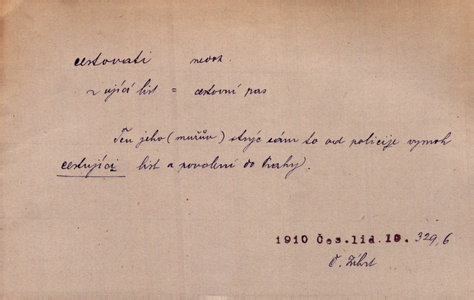 cestovati nedok.
~ ující list = cestovní pas
Ten jeho (mužův) strýc sám to od policije vymoh
cestující list a povolení do Prahy.
1910 Čes.lid.19. 329,6
Č. Zíbrt